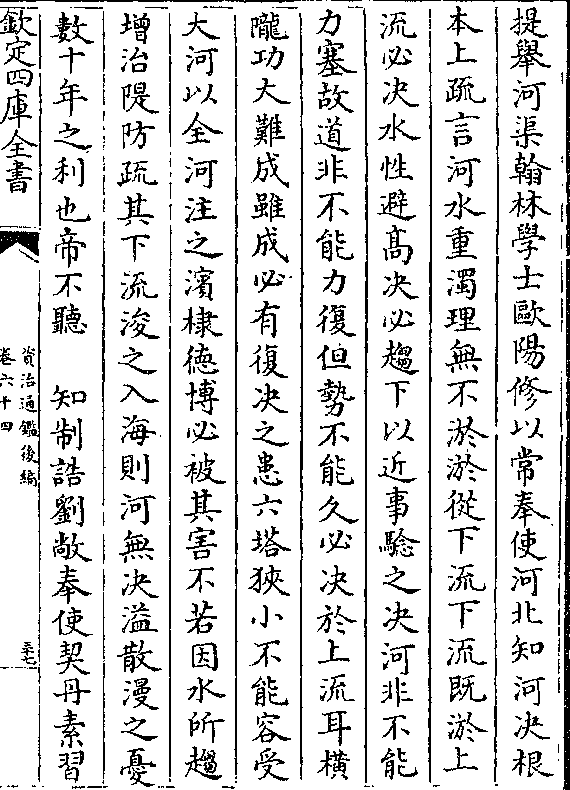 提舉河渠翰林學士歐陽修以常奉使河北知河决根
本上疏言河水重濁理無不淤淤從下流下流既淤上
流必决水性避高决必趨下以近事驗之决河非不能
力塞故道非不能力復但勢不能久必决於上流耳橫
隴功大難成雖成必有復决之患六塔狹小不能容受
大河以全河注之濱棣德博必被其害不若因水所趨
增治隄防疏其下流浚之入海則河無决溢散漫之憂
數十年之利也帝不聽　知制誥劉敞奉使契丹素習
欽定四庫全書
資治通鑑後編
卷六十四
三十七